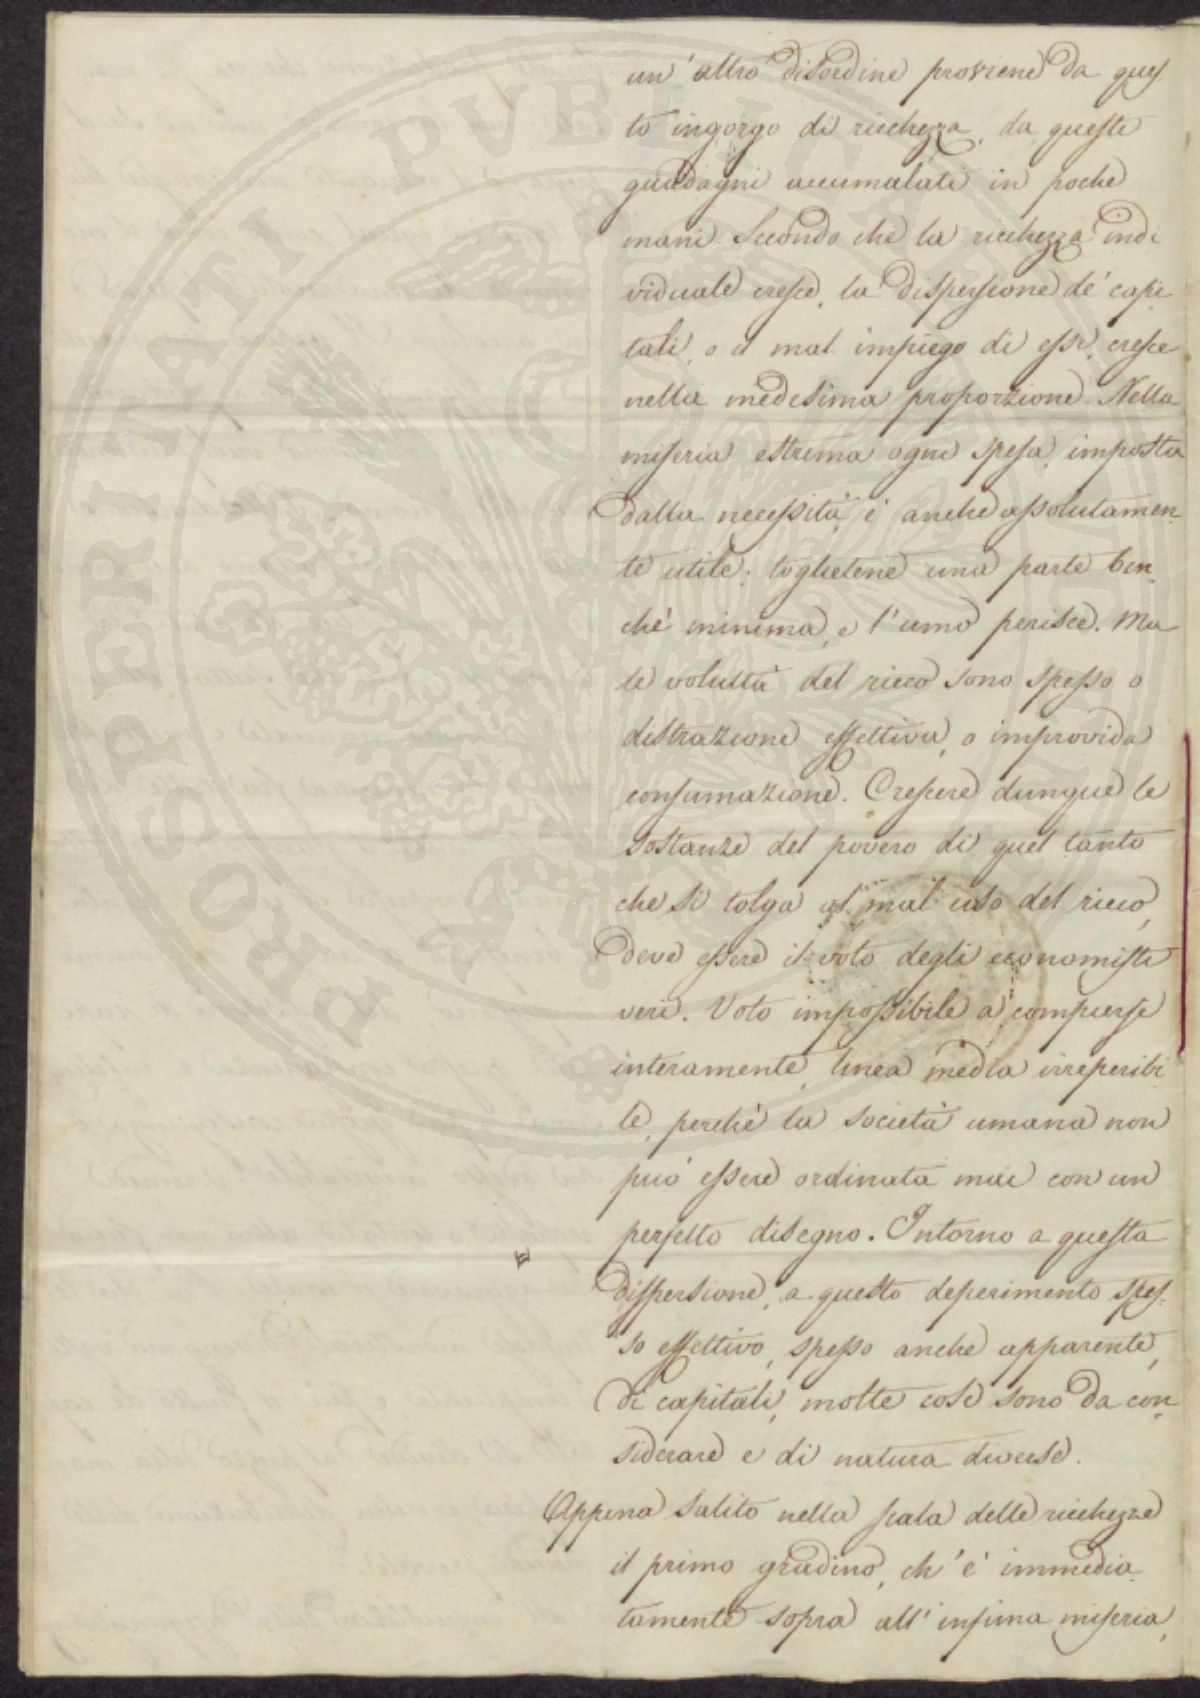 un' altro disordine proviene da ques
to ingorgo di ricchezza, da questi
guadagni accumulati in poche
mani. Secondo che la ricchezza indi
viduale cresce, la dispersione de' capi
tali, o il mal impiego di essi, cresce
nella medesima proporzione. Nella
miseria estrema ogni spesa, imposta
dalla necessità, è anche assolutamen
te utile: toglietene una parte ben
chè minima, e l'uomo perisce. Ma
le voluttà del ricco sono spesso o
distrazione effettiva, o improvida
consumazione. Crescere dunque le
sostanze del povero di quel tanto
che si tolga al mal uso del ricco,
deve essere il voto degli economisti
veri. Voto impossibile a compiersi
interamente, linea media irreperibi
le, perchè la società umana non
può essere ordinata mai con un
perfetto disegno. Intorno a questa
dispersione, a questo deperimento spes-
so effettivo, spesso anche apparente,
di capitali, molte cose sono da con
siderare e di natura diverse.
Appena salito nella scala delle ricchezze
il primo gradino, ch'è immedia
tamente sopra all'infima miseria,
PROSPERITATI PVBLICAE